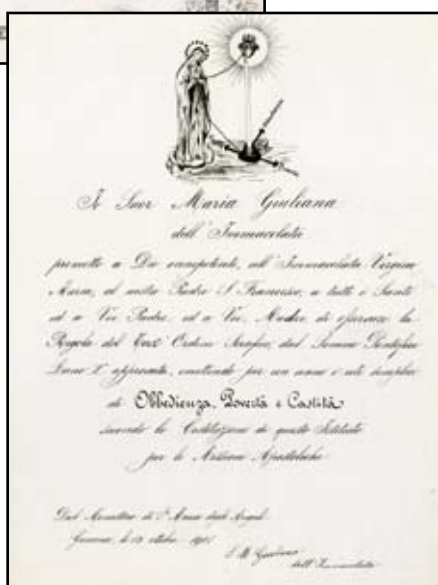 Io Suor Maria Giuliana
dell'Immacolata
prometto a Dio onnipotente, all'Immacolata Vergine
Maria, al nostro Padre S. Francesco, a tutti i Santi
ed a Voi Padre, ed a Voi, Madre, di osservare la
Regola del Terz' Ordine Serafico, dal Sommo Pontefice
Leone X approvata, emettendo per un anno i voti semplici
di Obbedienza, Povertà e Castità
secondo le Costituzioni di questo Istituto
per le Missioni Apostoliche
Dal Monastero di S. Maria degli Angeli
Gemona, li
dell'Immacolata